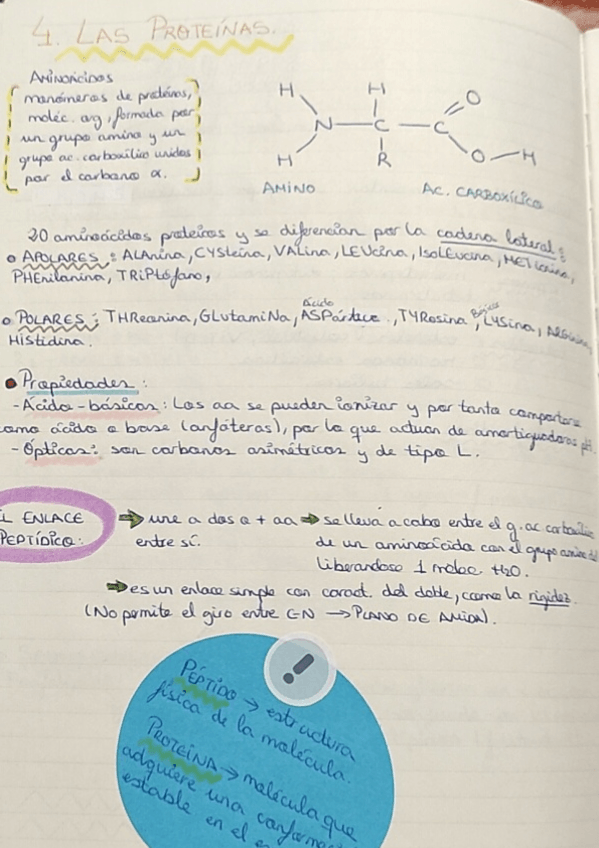 4. LAS PROTEÍNAS.
AMINOÁCIDOS
monómeros de proteínas,
moléc. org, formada por
un grupo amino y un
grupo ac. carboxílico unidos
por el carbono α.
H H O
N C C
H R O H
AMINO AC. CARBOXÍLICO
20 aminoácidos proteicos y se diferencian por la cadena lateral:
APOLARES: ALAnina, CYSteína, VALina, LEUcina, IsoLEucina, METionina,
PHEnilanina, TRiPtófano,
Ácido Básicos
POLARES: THReonina, GLutamiNa, ASPártico, TYRosina, LYSina, ARGinina,
HIStidina.
Propiedades:
- Ácido-básicas: Los aa se pueden ionizar y por tanto comportarse
como ácido o base (anfóteros), por lo que actúan de amortiguadores pH.
- Ópticas: son carbonos asimétricos y de tipo L.
EL ENLACE
PEPTÍDICO:
une a dos o + aa
entre sí.
se lleva a cabo entre el g. ac. carboxílico
de un aminoácido con el grupo amino del
liberandose 1 molec H2O.
es un enlace simple con caract. del doble, como la rigidez.
(No permite el giro entre C-N → PLANO DE AMIDA).
!
PÉPTIDO → estructura
física de la molécula.
PROTEÍNA → molécula que
adquiere una
estable en el